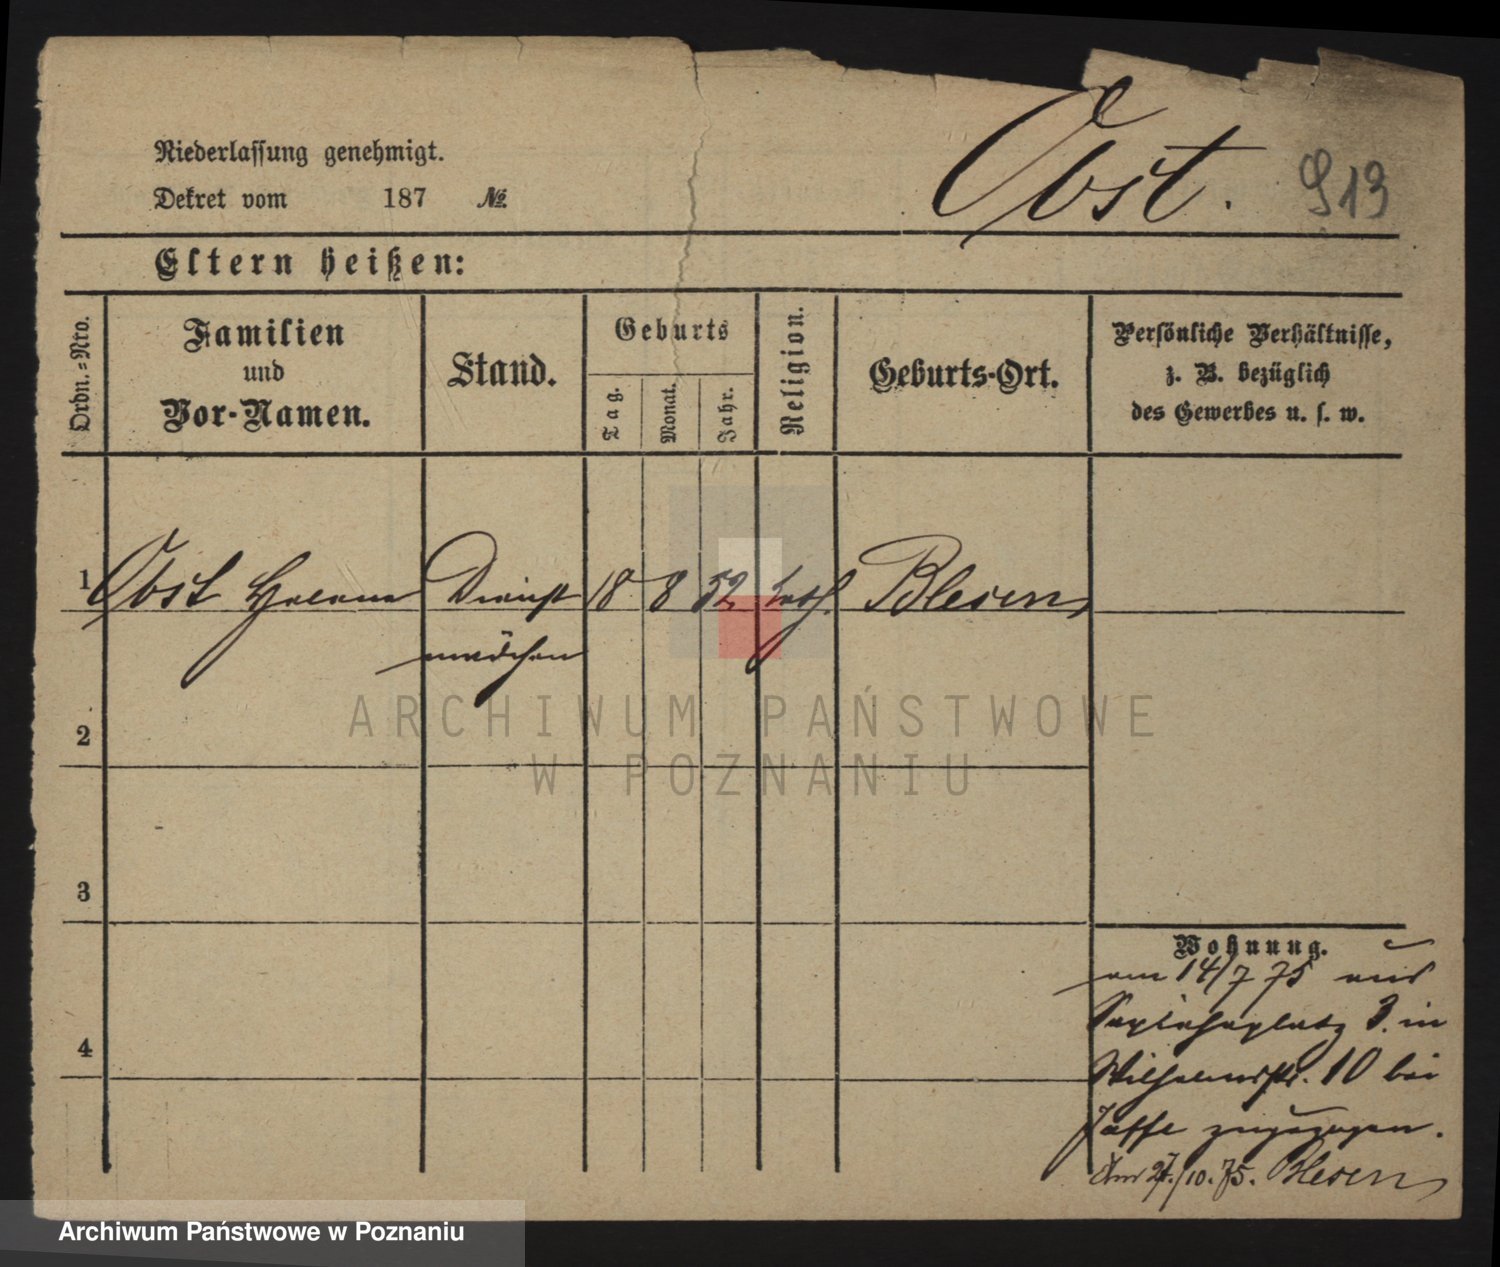 Niederlassung genehmigt.
Dekret vom 187 №
Obst.
913
Eltern heißen:
Ordn.-Nro.
Familien
und
Vor-Namen.
Stand.
Geburts
Tag.
Monat.
Jahr.
Religion.
Geburts-Ort.
Persönliche Verhältnisse,
z. B. bezüglich
des Gewerbes u. s. w.
1 Obst Helena Dienst 18 8 52 kath. Blesen
mädchen
2
3
4
Wohnung.
am 14/7 75 aus
Sapiehaplatz 3. in
Wilhelmstr. 10 bei
Jaffe zugezogen.
27./10. 75. Blesen
ARCHIWUM PAŃSTWOWE
W POZNANIU
Archiwum Państwowe w Poznaniu